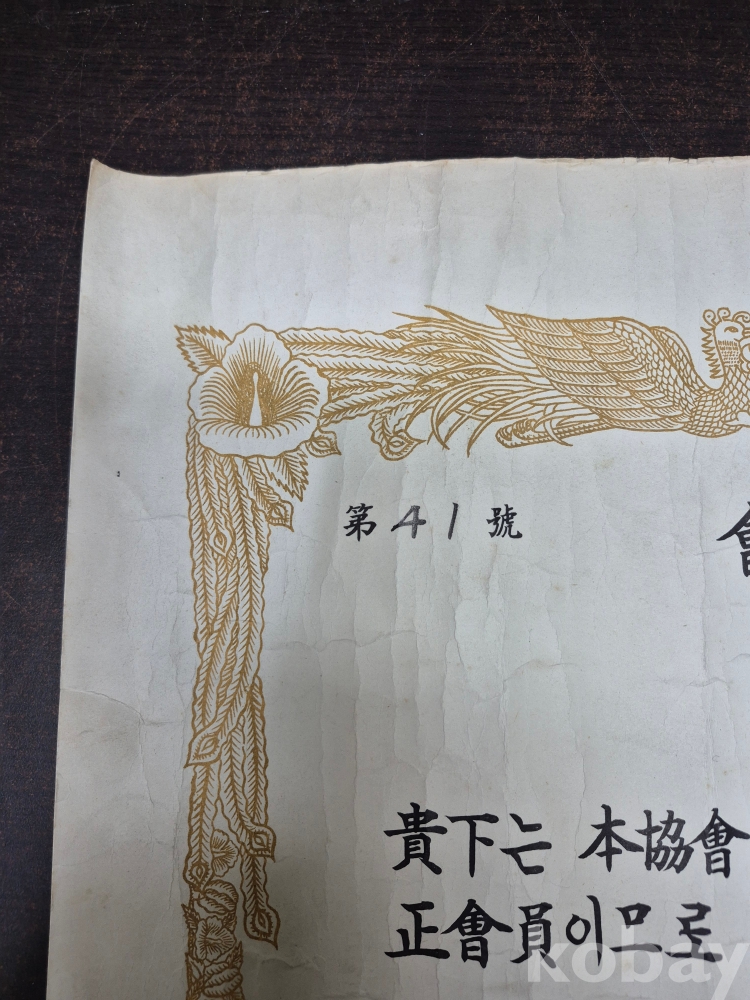 第 41 號
會
貴下는 本協會
正會員이므로
kobay